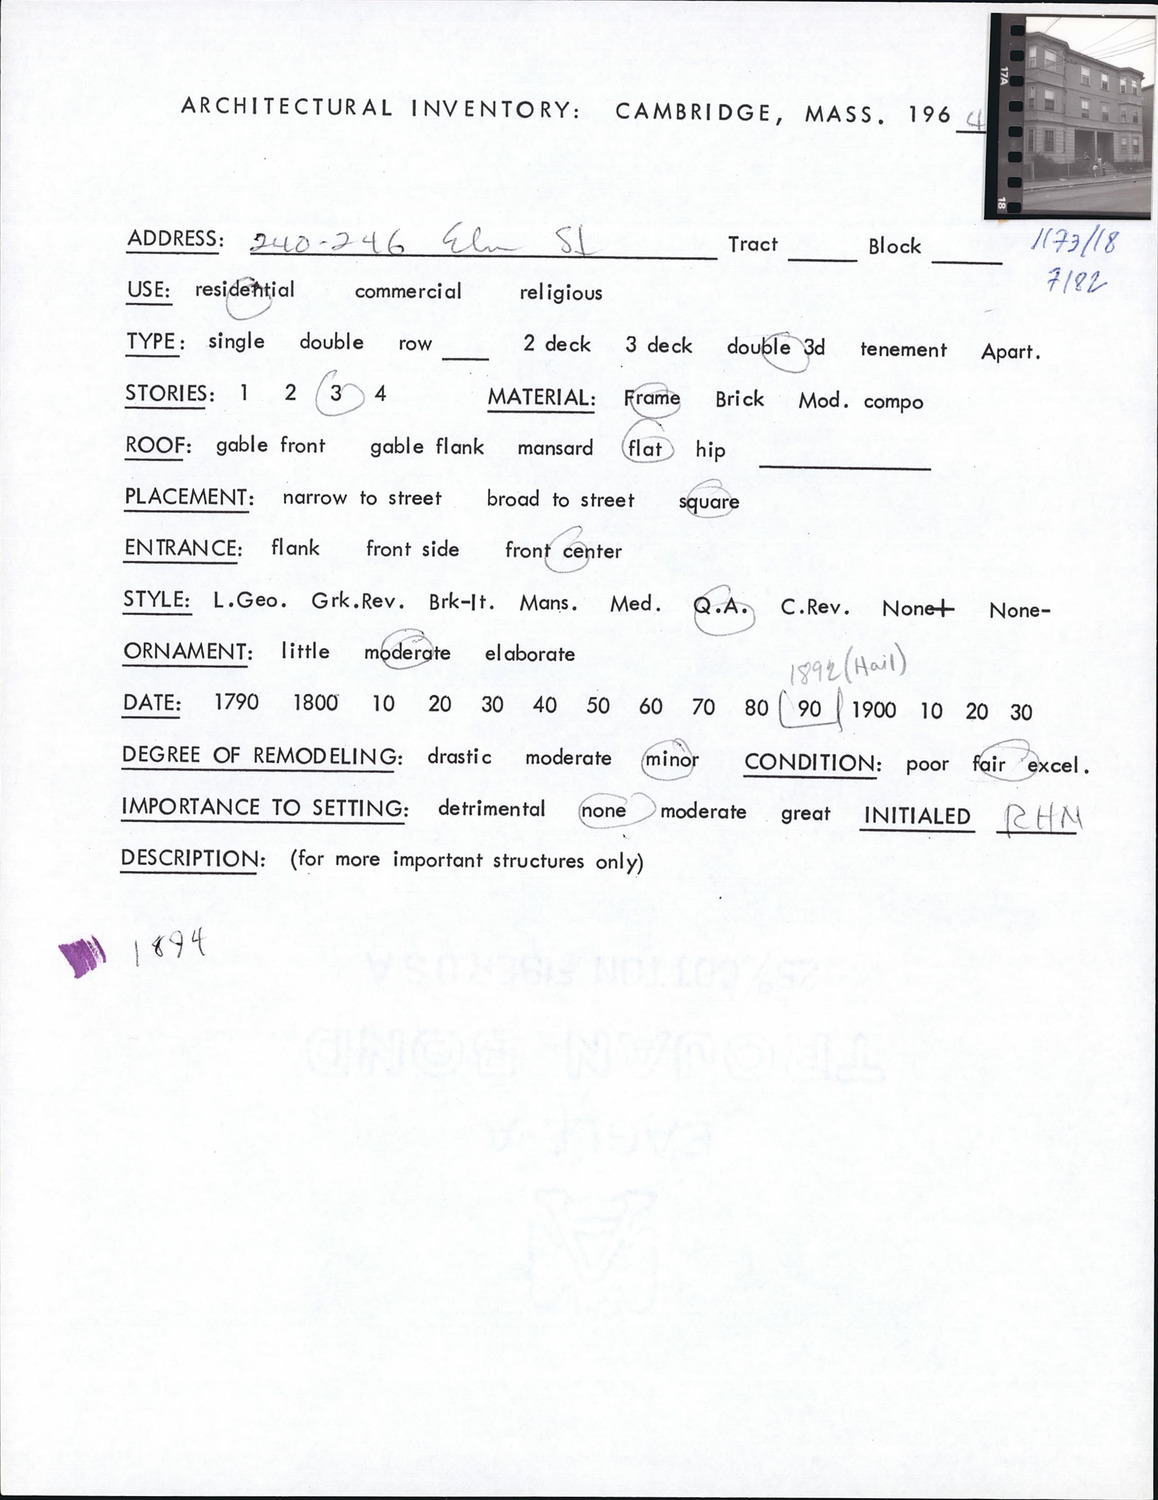 ARCHITECTURAL INVENTORY: CAMBRIDGE, MASS. 1964
17A
18
1173/18
7/82
ADDRESS: 240-246 Elm St Tract Block
USE: residential commercial religious
TYPE: single double row 2 deck 3 deck double 3d tenement Apart.
STORIES: 1 2 3 4 MATERIAL: Frame Brick Mod. compo
ROOF: gable front gable flank mansard flat hip
PLACEMENT: narrow to street broad to street square
ENTRANCE: flank front side front center
STYLE: L.Geo. Grk.Rev. Brk-It. Mans. Med. Q.A. C.Rev. None+ None-
ORNAMENT: little moderate elaborate
1892 (Hail)
DATE: 1790 1800 10 20 30 40 50 60 70 80 90 1900 10 20 30
DEGREE OF REMODELING: drastic moderate minor CONDITION: poor fair excel.
IMPORTANCE TO SETTING: detrimental none moderate great INITIALED RHM
DESCRIPTION: (for more important structures only)
1894